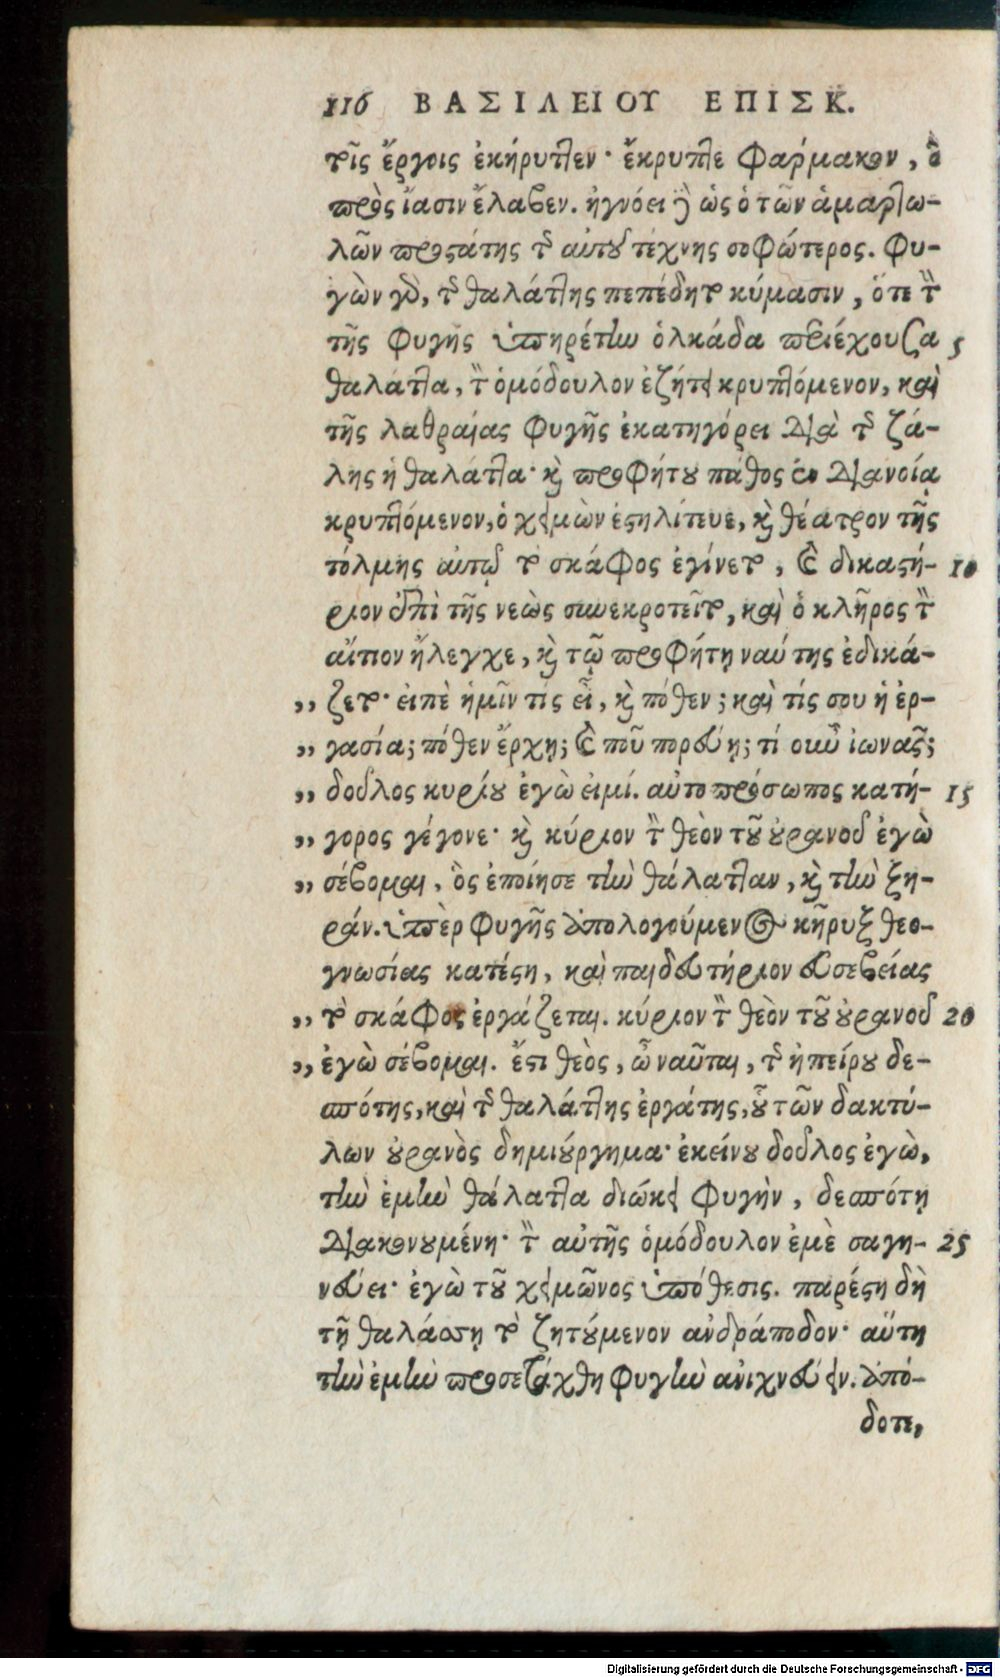 116 ΒΑΣΙΛΕΙΟΥ ΕΠΙΣΚ.
τοῖς ἔργοις ἐκήρυττεν· ἔκρυπτε φάρμακον, ὃ
πρὸς ἴασιν ἔλαβεν. ἠγνόει δὲ ὡς ὁ τῶν ἁμαρτω-
λῶν προστάτης τῆς αὐτοῦ τέχνης σοφώτερος. φυ-
γὼν γὰρ, τοῖς τῆς θαλάττης πεπέδητο κύμασιν, ὅτε τὴν
τῆς φυγῆς ὑπηρέτιν ὁλκάδα περιέχουσα 5
θαλάττα, τὸν ὁμόδουλον ἐζήτει κρυπτόμενον, καὶ
τῆς λαθραίας φυγῆς ἐκατηγόρει διὰ τῆς ζά-
λης ἡ θαλάττα· καὶ προφήτου πάθος ἐν διανοίᾳ
κρυπτόμενον, ὁ χειμὼν ἐστηλίτευε, καὶ θέατρον τῆς
τόλμης αὐτῷ τὸ σκάφος ἐγίνετο, καὶ δικαστή- 10
ριον ἐπὶ τῆς νεὼς συνεκροτεῖτο, καὶ ὁ κλῆρος τὸν
αἴτιον ἤλεγχε, καὶ τῷ προφήτῃ ναύτης ἐδικά-
„ ζετο· εἰπὲ ἡμῖν τίς εἶ, καὶ πόθεν; καὶ τίς σου ἡ ἐρ-
„ γασία; πόθεν ἔρχῃ; καὶ ποῦ πορεύῃ; τί οὖν ἰωνᾶς;
„ δοῦλος κυρίου ἐγὼ εἰμί. αὐτοπρόσωπος κατή- 15
„ γορος γέγονε· καὶ κύριον τὸν θεὸν τοῦ οὐρανοῦ ἐγὼ
„ σέβομαι, ὃς ἐποίησε τὴν θάλατταν, καὶ τὴν ξη-
ράν. ὑπὲρ φυγῆς ἀπολογούμενος κῆρυξ θεο-
γνωσίας κατέστη, καὶ παιδευτήριον εὐσεβείας
„ τὸ σκάφος ἐργάζεται. κύριον τὸν θεὸν τοῦ οὐρανοῦ 20
„ ἐγὼ σέβομαι. ἔστι θεὸς, ὦ ναῦται, τῆς ἠπείρου δε-
σπότης, καὶ τῆς θαλάττης ἐργάτης, οὗ τῶν δακτύ-
λων οὐρανὸς δημιούργημα· ἐκείνου δοῦλος ἐγὼ,
τὴν ἐμὴν θάλαττα διώκει φυγὴν, δεσπότῃ
διακονουμένη· τὸν αὐτῆς ὁμόδουλον ἐμὲ σαγη- 25
νεύει· ἐγὼ τοῦ χειμῶνος ὑπόθεσις. παρέστη δὴ
τῇ θαλάσσῃ τὸ ζητούμενον ἀνδράποδον· αὕτη
τὴν ἐμὴν προσετάχθη φυγὴν ἀνιχνεύειν. ἀπό-
δοτε,
Digitalisierung gefördert durch die Deutsche Forschungsgemeinschaft - DFG